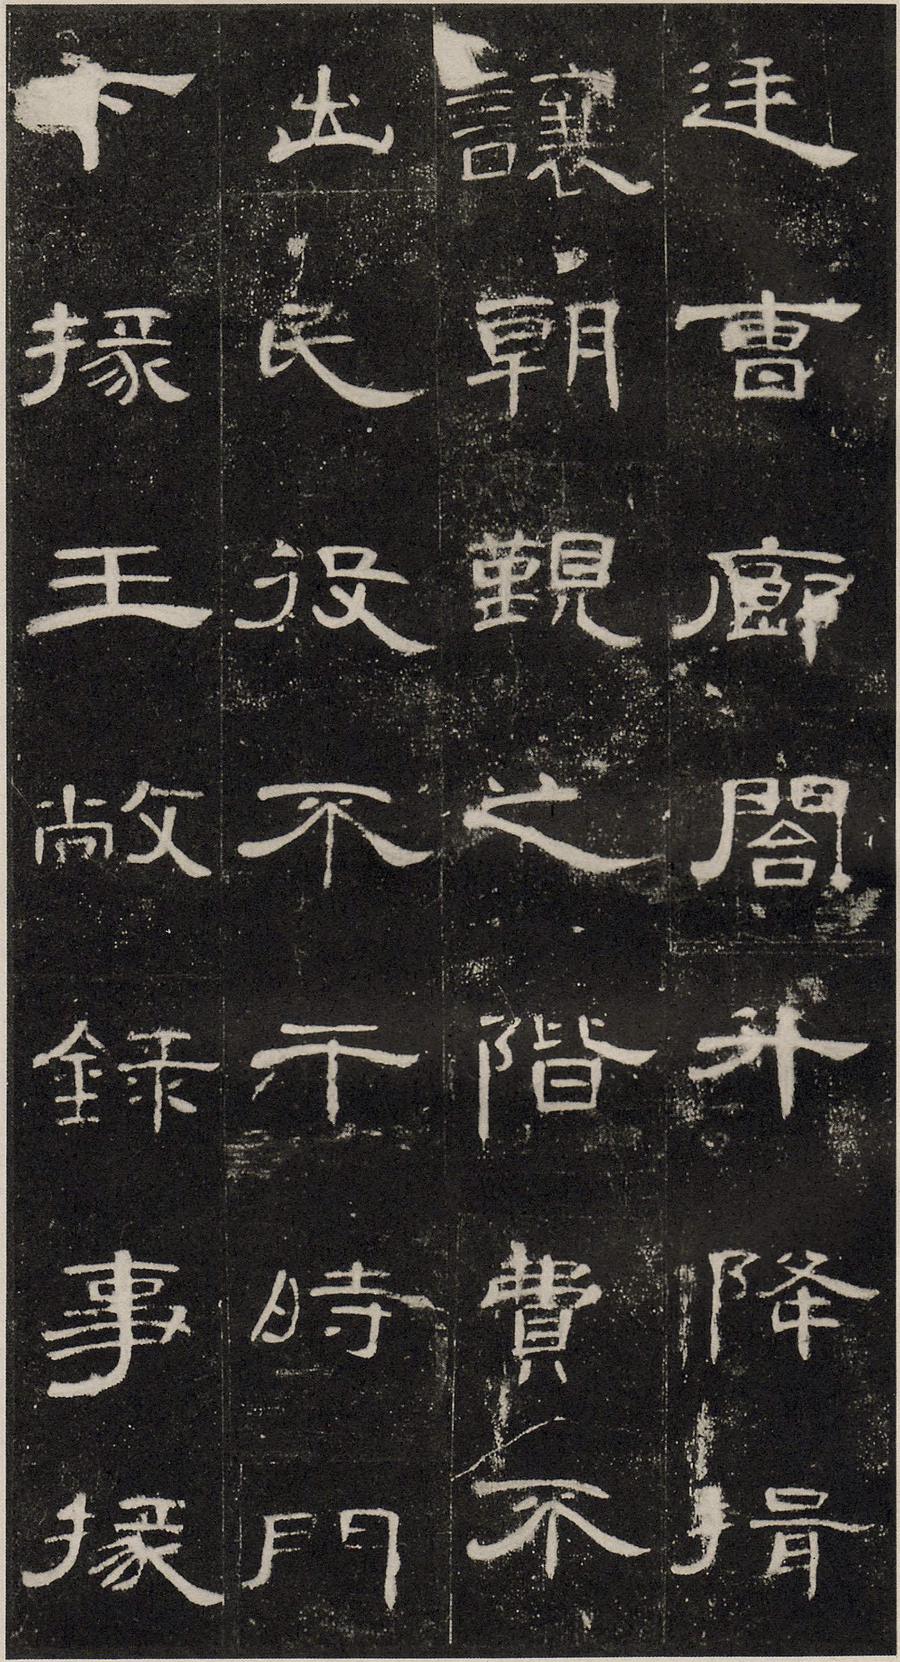 廷曹廊閣升降揖
讓朝覲之階費不
出民役不干時門
下掾王敞録事掾